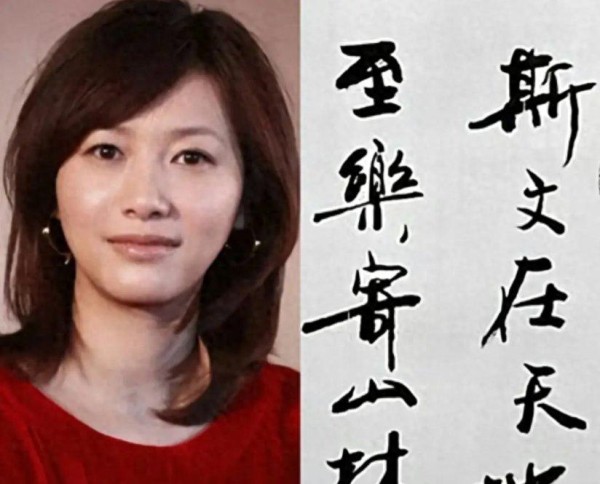 斯文在天
至樂寄山